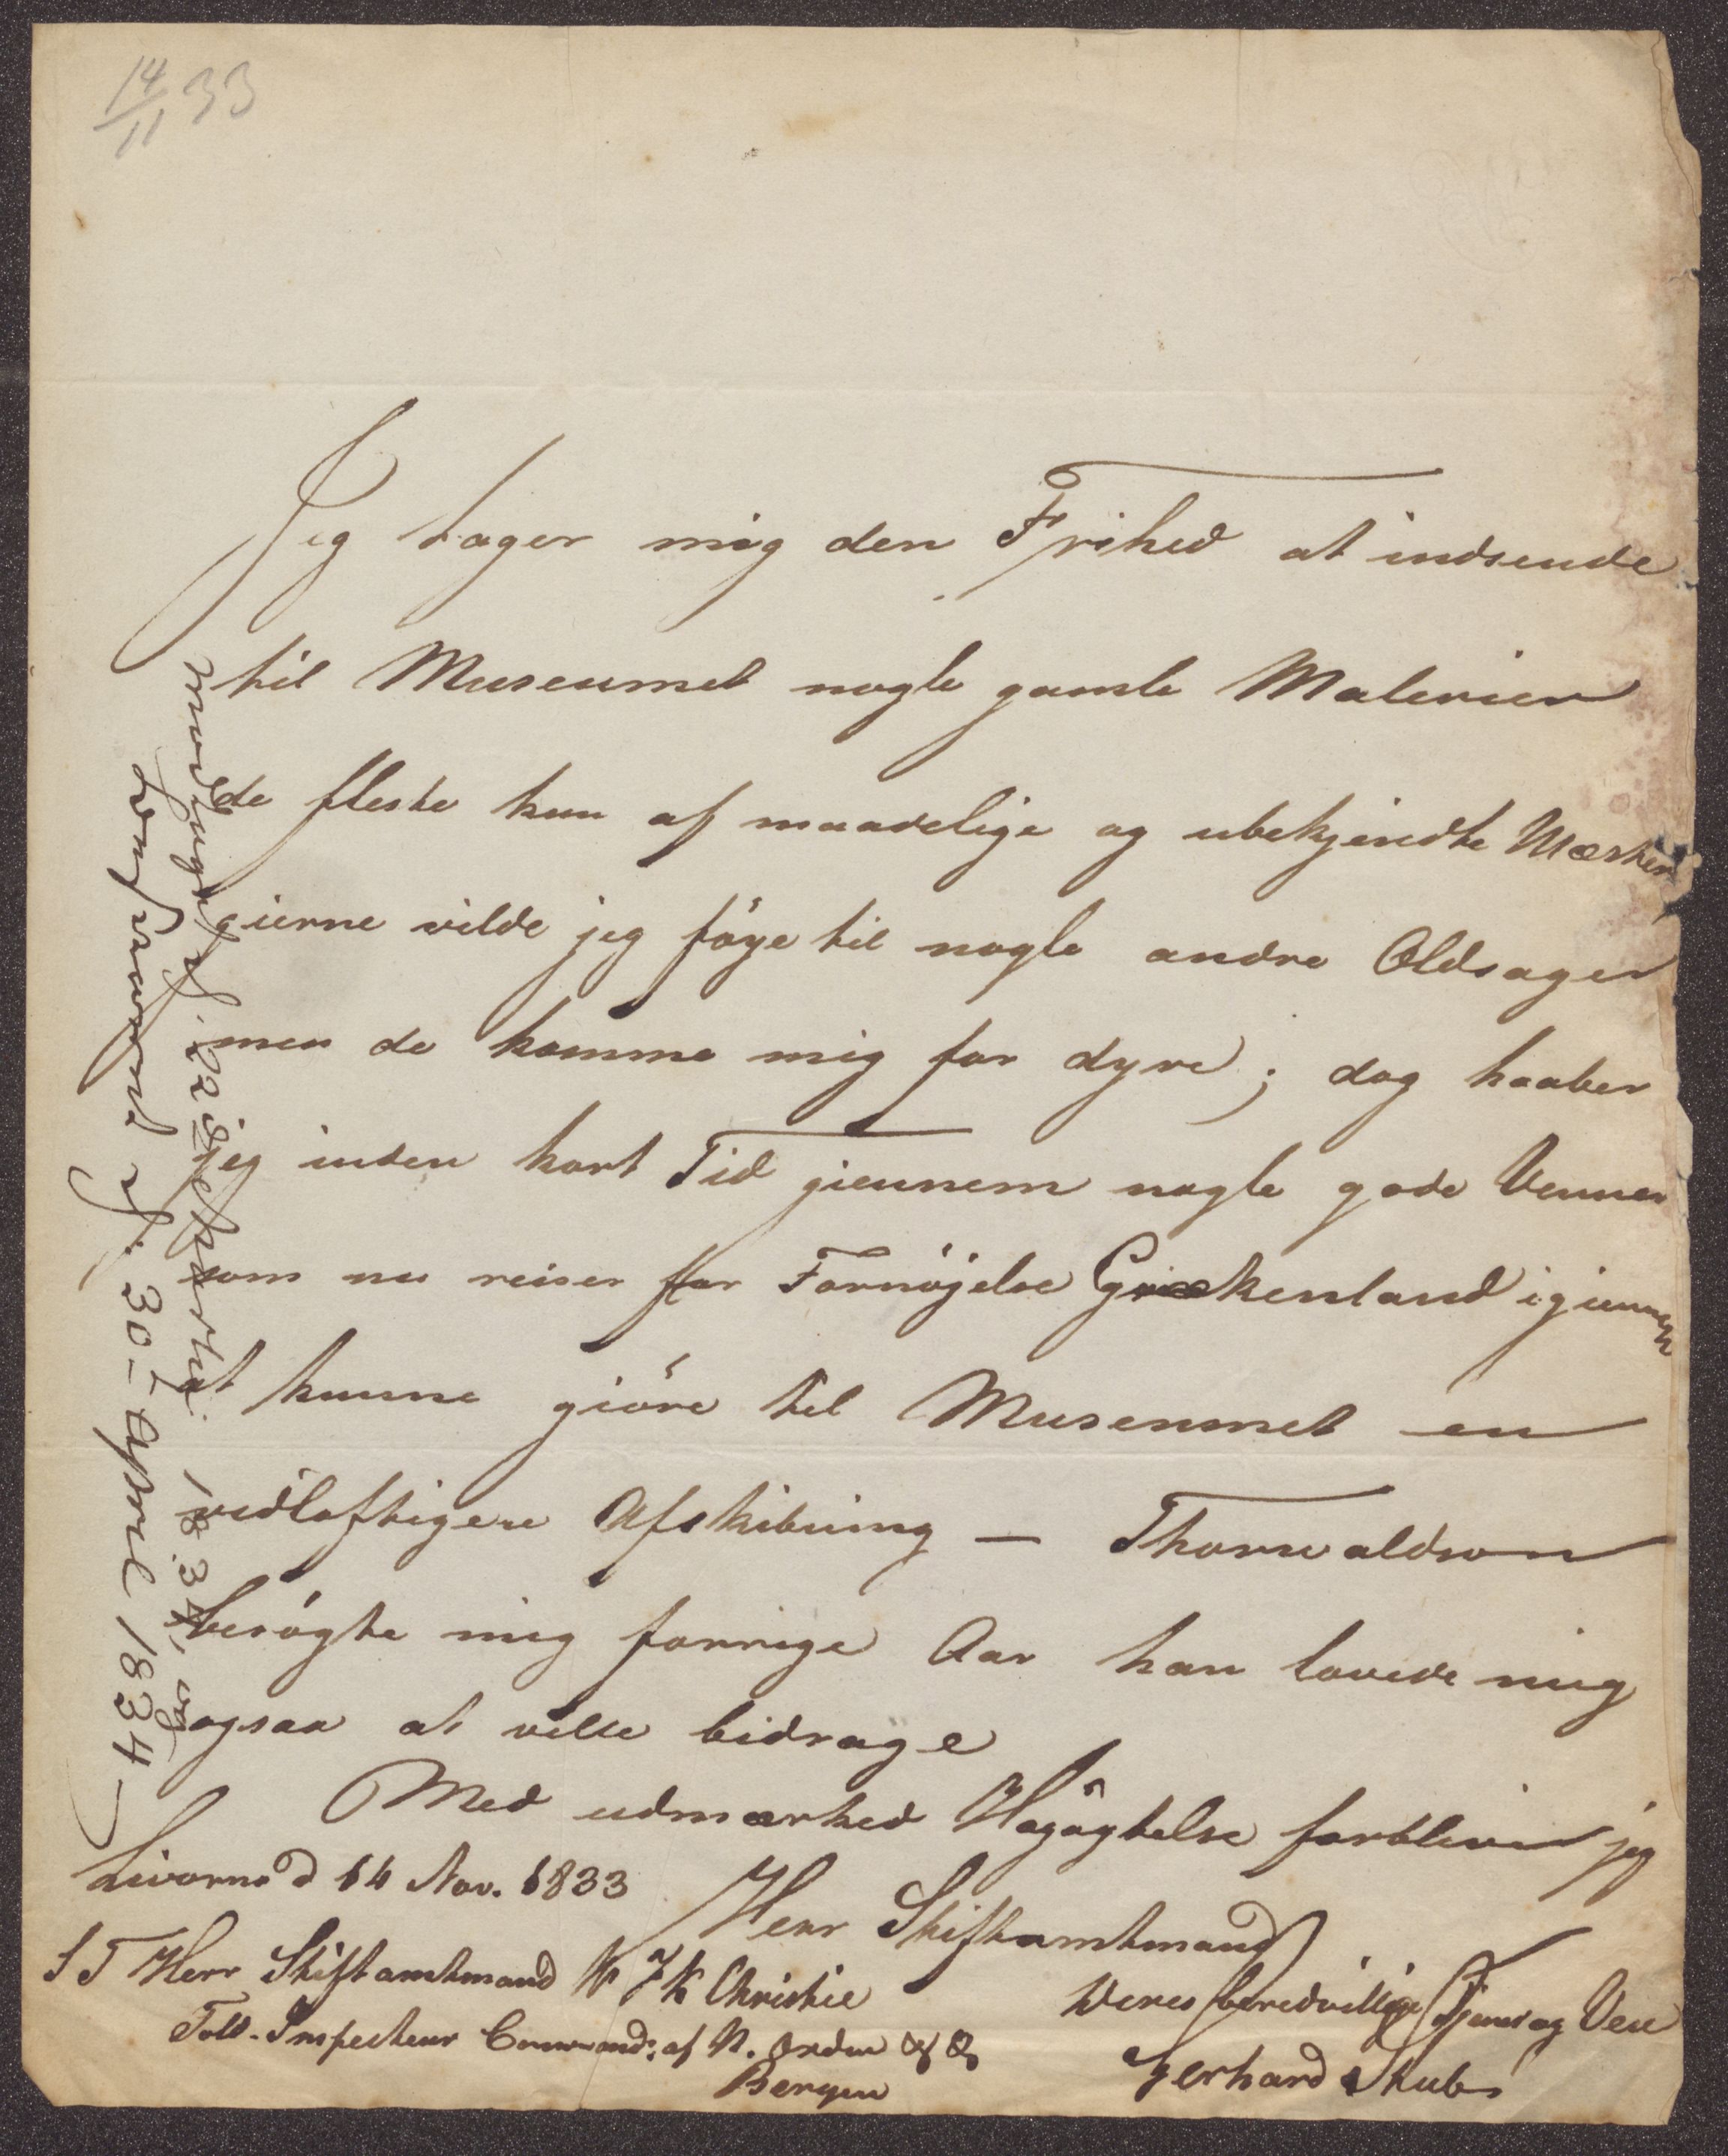 14/11 33
Jeg tager mig den Frihed at indsende
til Museumet nogle gamle Malerier
de fleste kun af maadelige og ubekjendte Mæster
gierne vilde jeg föye til nogle andre Oldsager
men de komme mig for dyre; dog haaber
jeg inden kort Tid giennem nogle gode Venner
som nu reiser for Fornöjelse Grækenland igiennem
at kunne giöre til Museumet en
vidlöftigere Afskibning — Thorwaldsen
besögte mig forrige Aar han lovede mig
ogsaa at ville bidrage
Med udmærked Högagtelse forbliver jeg
Livorno d 14 Nov. 1833
Herr Stiftamtmand
S T Herr Stiftamtmand W F K Christie
Deres beredvillige Tjener og Ven
Told-Inspecteur Command: af N. Orden & &
Gerhard Stub
Bergen
modtaget d. 22de Marti 1834, og
besvaret d. 30- April 1834